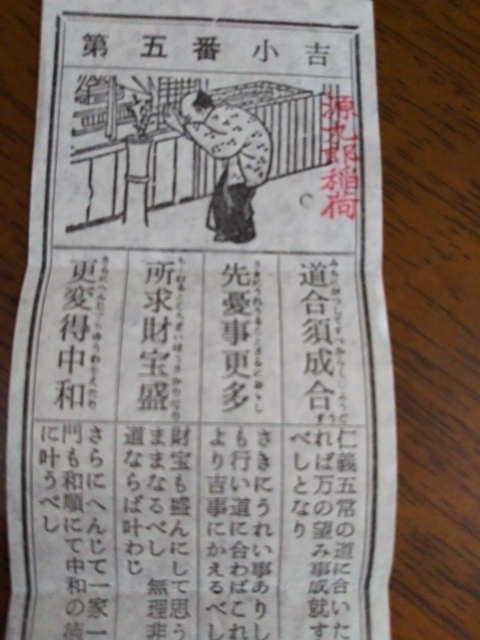 第五番小吉
源九郎稲荷
道合須成合
先憂事更多
所求財宝盛
更変得中和
仁義五常の道に合いた
れば万の望み事成就す
べしとなり
さきにうれい事ありし
も行い道に合わばこれ
より吉事にかえるべし
財宝も盛んにして思う
ままなるべし 無理非
道ならば叶わじ
さらにへんじて一家一
門も和順にて中和の
に叶うべし